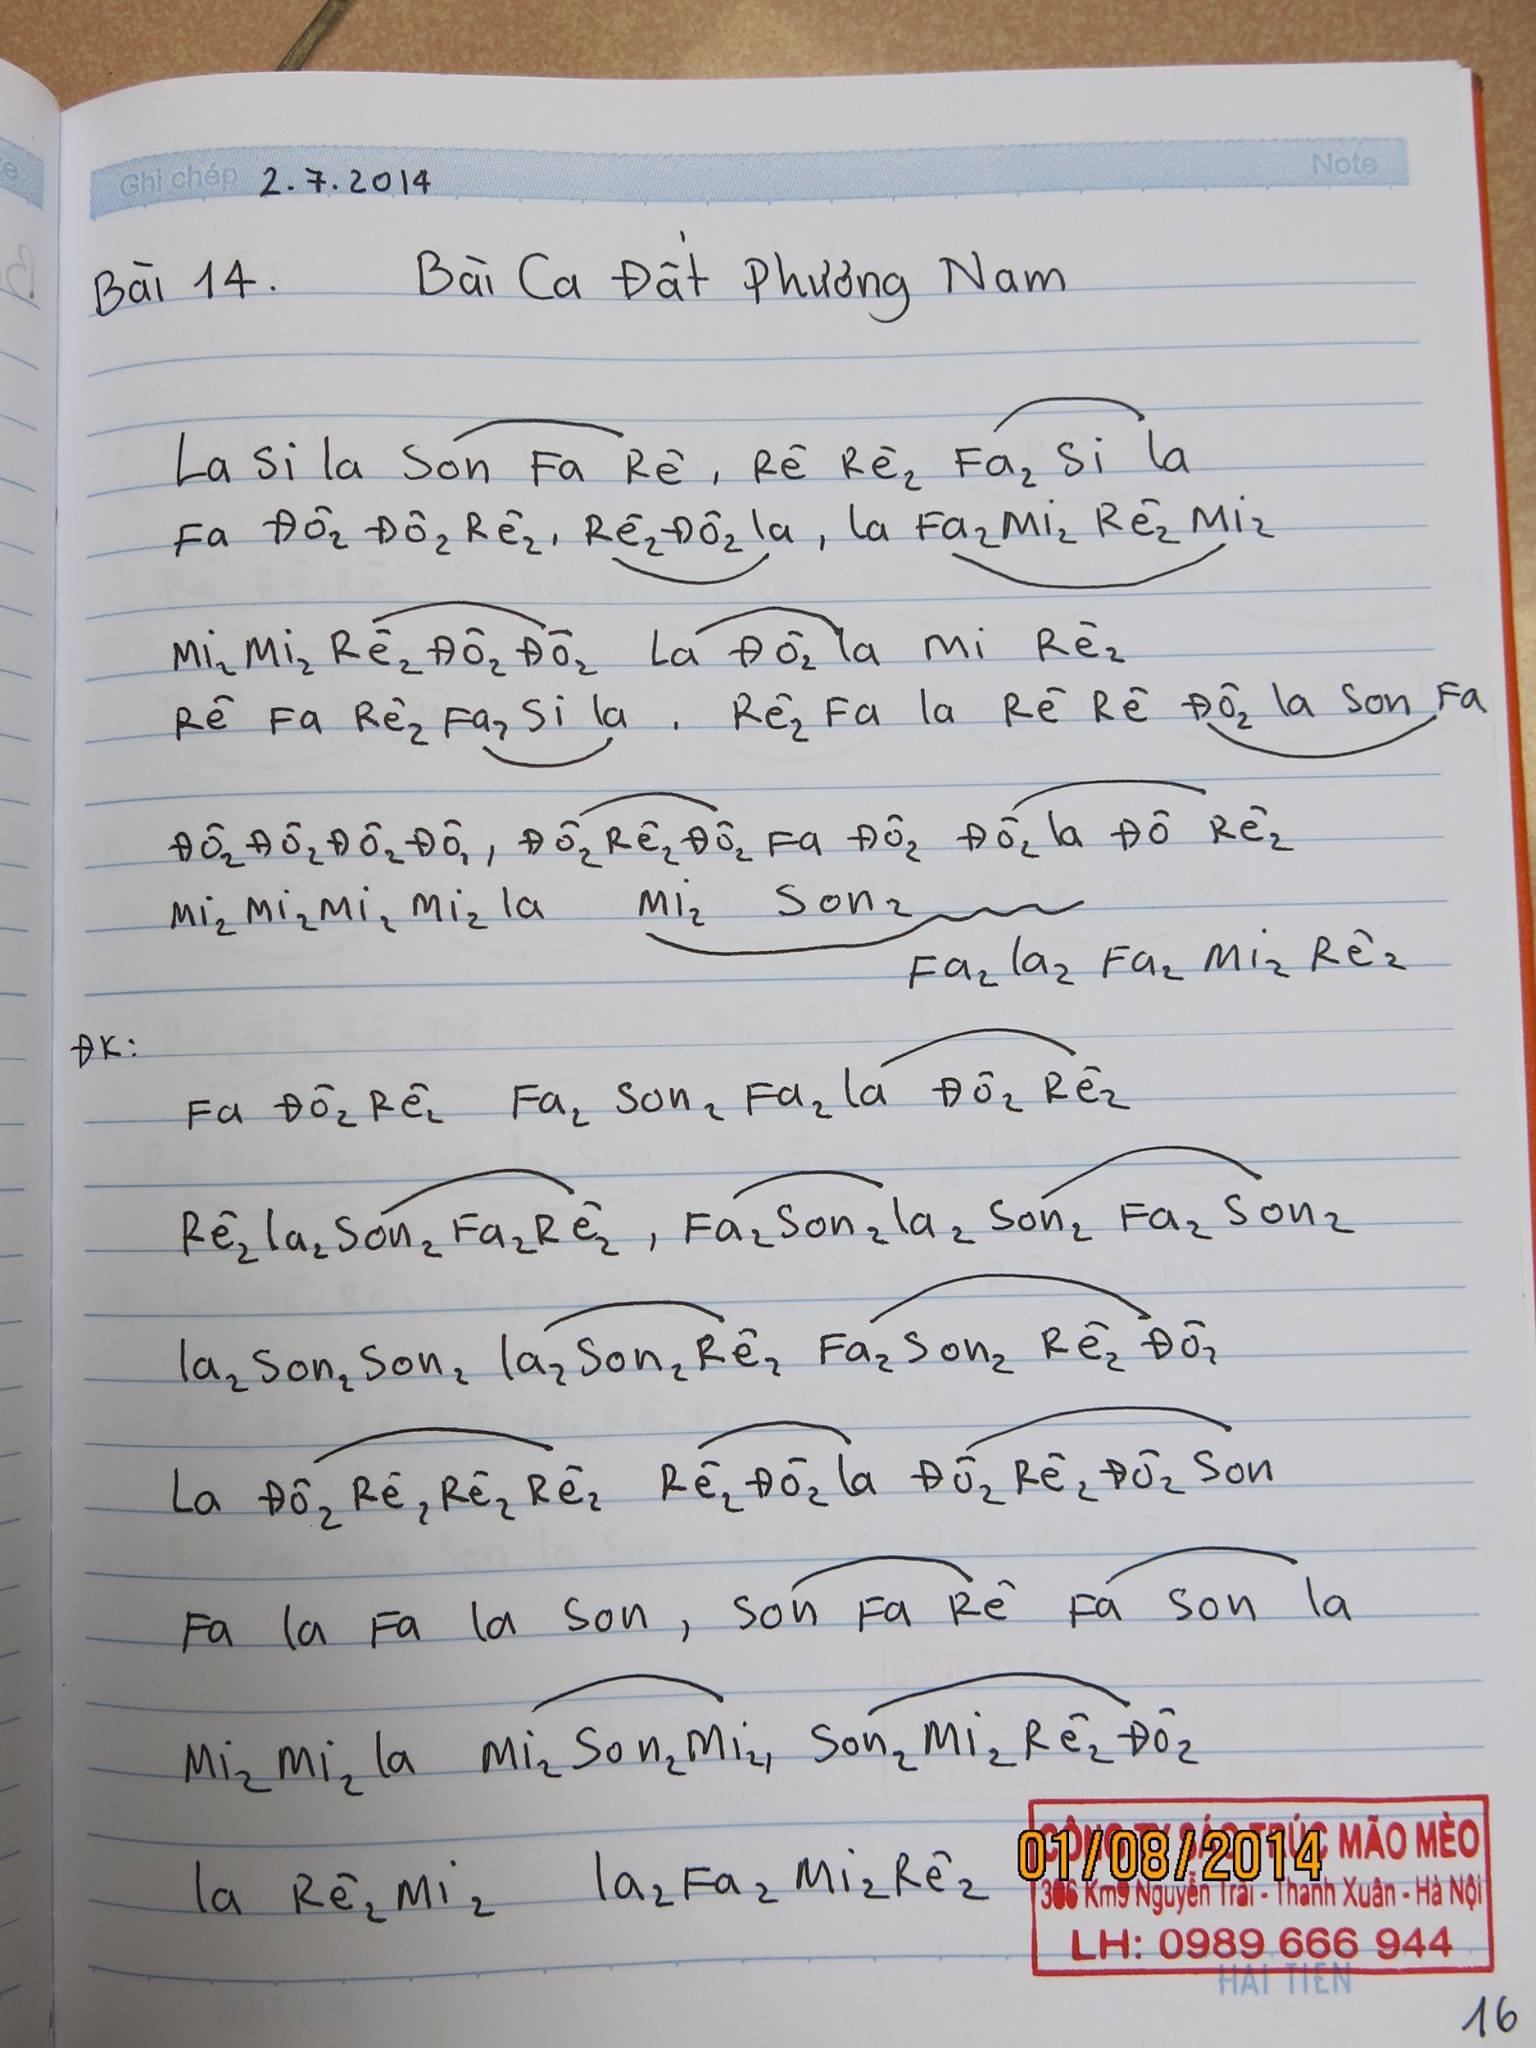 Ghi chép 2.7.2014 Note
Bài 14. Bài Ca Đất Phương Nam
La Si la Son Fa Rê, Rê Rê₂ Fa₂ Si la
Fa Đô₂ Đô₂ Rê₂, Rê₂ Đô₂ la, la Fa₂ Mi₂ Rê₂ Mi₂
Mi₂ Mi₂ Rê₂ Đô₂ Đô₂ La Đô₂ la Mi Rê₂
Rê Fa Rê₂ Fa₂ Si la. Rê₂ Fa la Rê Rê Đô₂ la Son Fa
Đô₂ Đô₂ Đô₂ Đô₂, Đô₂ Rê₂ Đô₂ Fa Đô₂ Đô₂ la Đô Rê₂
Mi₂ Mi₂ Mi₂ Mi₂ la Mi₂ Son₂
Fa₂ la₂ Fa₂ Mi₂ Rê₂
ĐK:
Fa Đô₂ Rê₂ Fa₂ Son₂ Fa₂ la Đô₂ Rê₂
Rê₂ la₂ Son₂ Fa₂ Rê₂, Fa₂ Son₂ la₂ Son₂ Fa₂ Son₂
la₂ Son₂ Son₂ la₂ Son₂ Rê₂ Fa₂ Son₂ Rê₂ Đô₂
La Đô₂ Rê₂ Rê₂ Rê₂ Rê₂ Đô₂ la Đô₂ Rê₂ Đô₂ Son
Fa la Fa la Son, Son Fa Rê Fa Son la
Mi₂ Mi₂ la Mi₂ Son₂ Mi₂, Son₂ Mi₂ Rê₂ Đô₂
la Rê₂ Mi₂ la₂ Fa₂ Mi₂ Rê₂
CÔNG TY SÁO TRÚC MÃO MÈO
01/08/2014
306 Km9 Nguyễn Trãi - Thanh Xuân - Hà Nội
LH: 0989 666 944
HAI TIEN
16